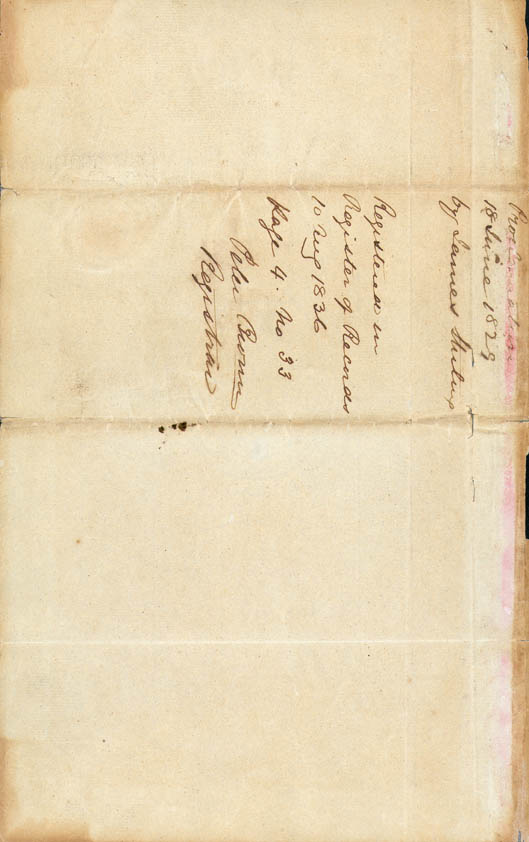 Proclamation
18 June 1829
by James Stirling
Registered in
Register of Records
10 Aug 1836
Page 4. No 33
Peter Broun
Registrar